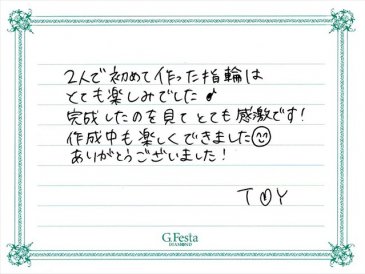 2人で初めて作った指輪は
とても楽しみでした♪
完成したのを見てとても感激です！
作成中も楽しくできました☺
ありがとうございました！
T♡Y
G.Festa
DIAMOND